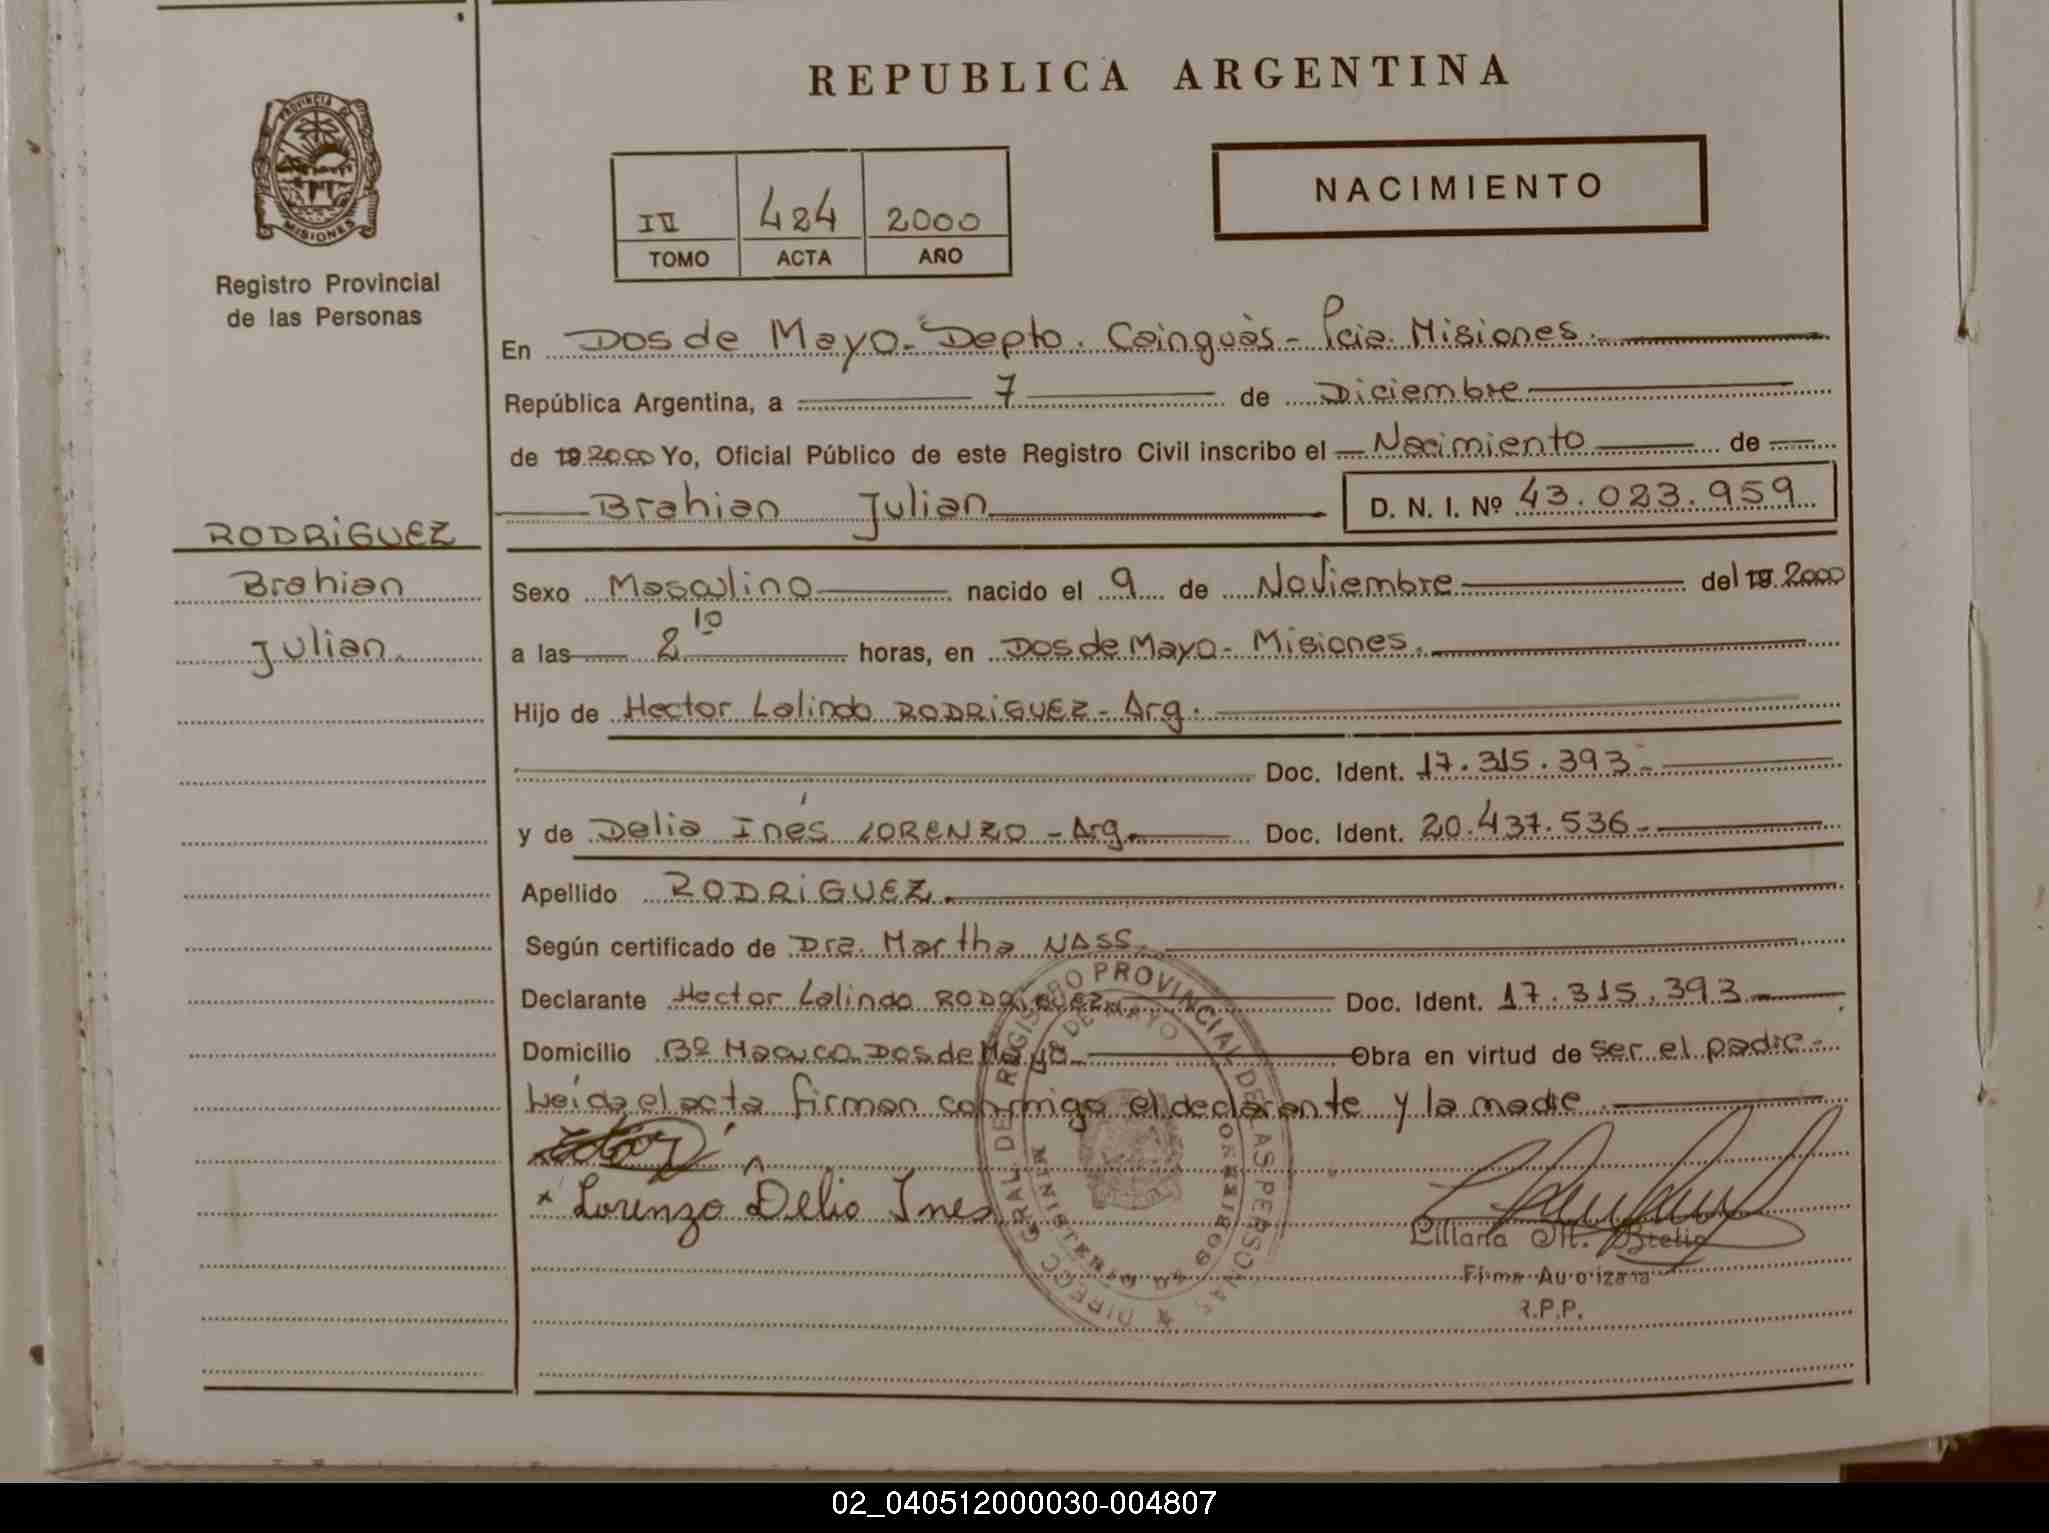 REPUBLICA ARGENTINA
PROVINCIA DE
MISIONES
Registro Provincial
de las Personas
NACIMIENTO
IV 424 2000
TOMO ACTA AÑO
En Dos de Mayo - Depto. Cainguàs - Pcia. Misiones.
República Argentina, a 7 de Diciembre
de 19 2000 Yo, Oficial Público de este Registro Civil inscribo el Nacimiento de
Brahian Julian D. N. I. Nº 43.023.959
RODRIGUEZ
Brahian
Julian
Sexo Masculino nacido el 9 de Noviembre del 19 2000
a las 2 10 horas, en Dos de Mayo - Misiones.
Hijo de Hector Lalindo RODRIGUEZ - Arg.
Doc. Ident. 17.315.393 -
y de Delia Inés LORENZO - Arg. Doc. Ident. 20.437.536 -
Apellido RODRIGUEZ.
Según certificado de Dra. Martha NASS.
Declarante Hector Lalindo RODRIGUEZ Doc. Ident. 17.315.393 -
Domicilio Bº Macuco Dos de Mayo Obra en virtud de ser el padre -
Leída el acta firman conmigo el declarante y la madre
x Lorenzo Delia Ines
Liliana M.
Firma Autorizada
R.P.P.
DIRECC. GRAL. DE REGISTRO PROVINCIAL DE LAS PERSONAS
DE MAYO
MINISTERIO DE GOBIERNO
02_040512000030-004807